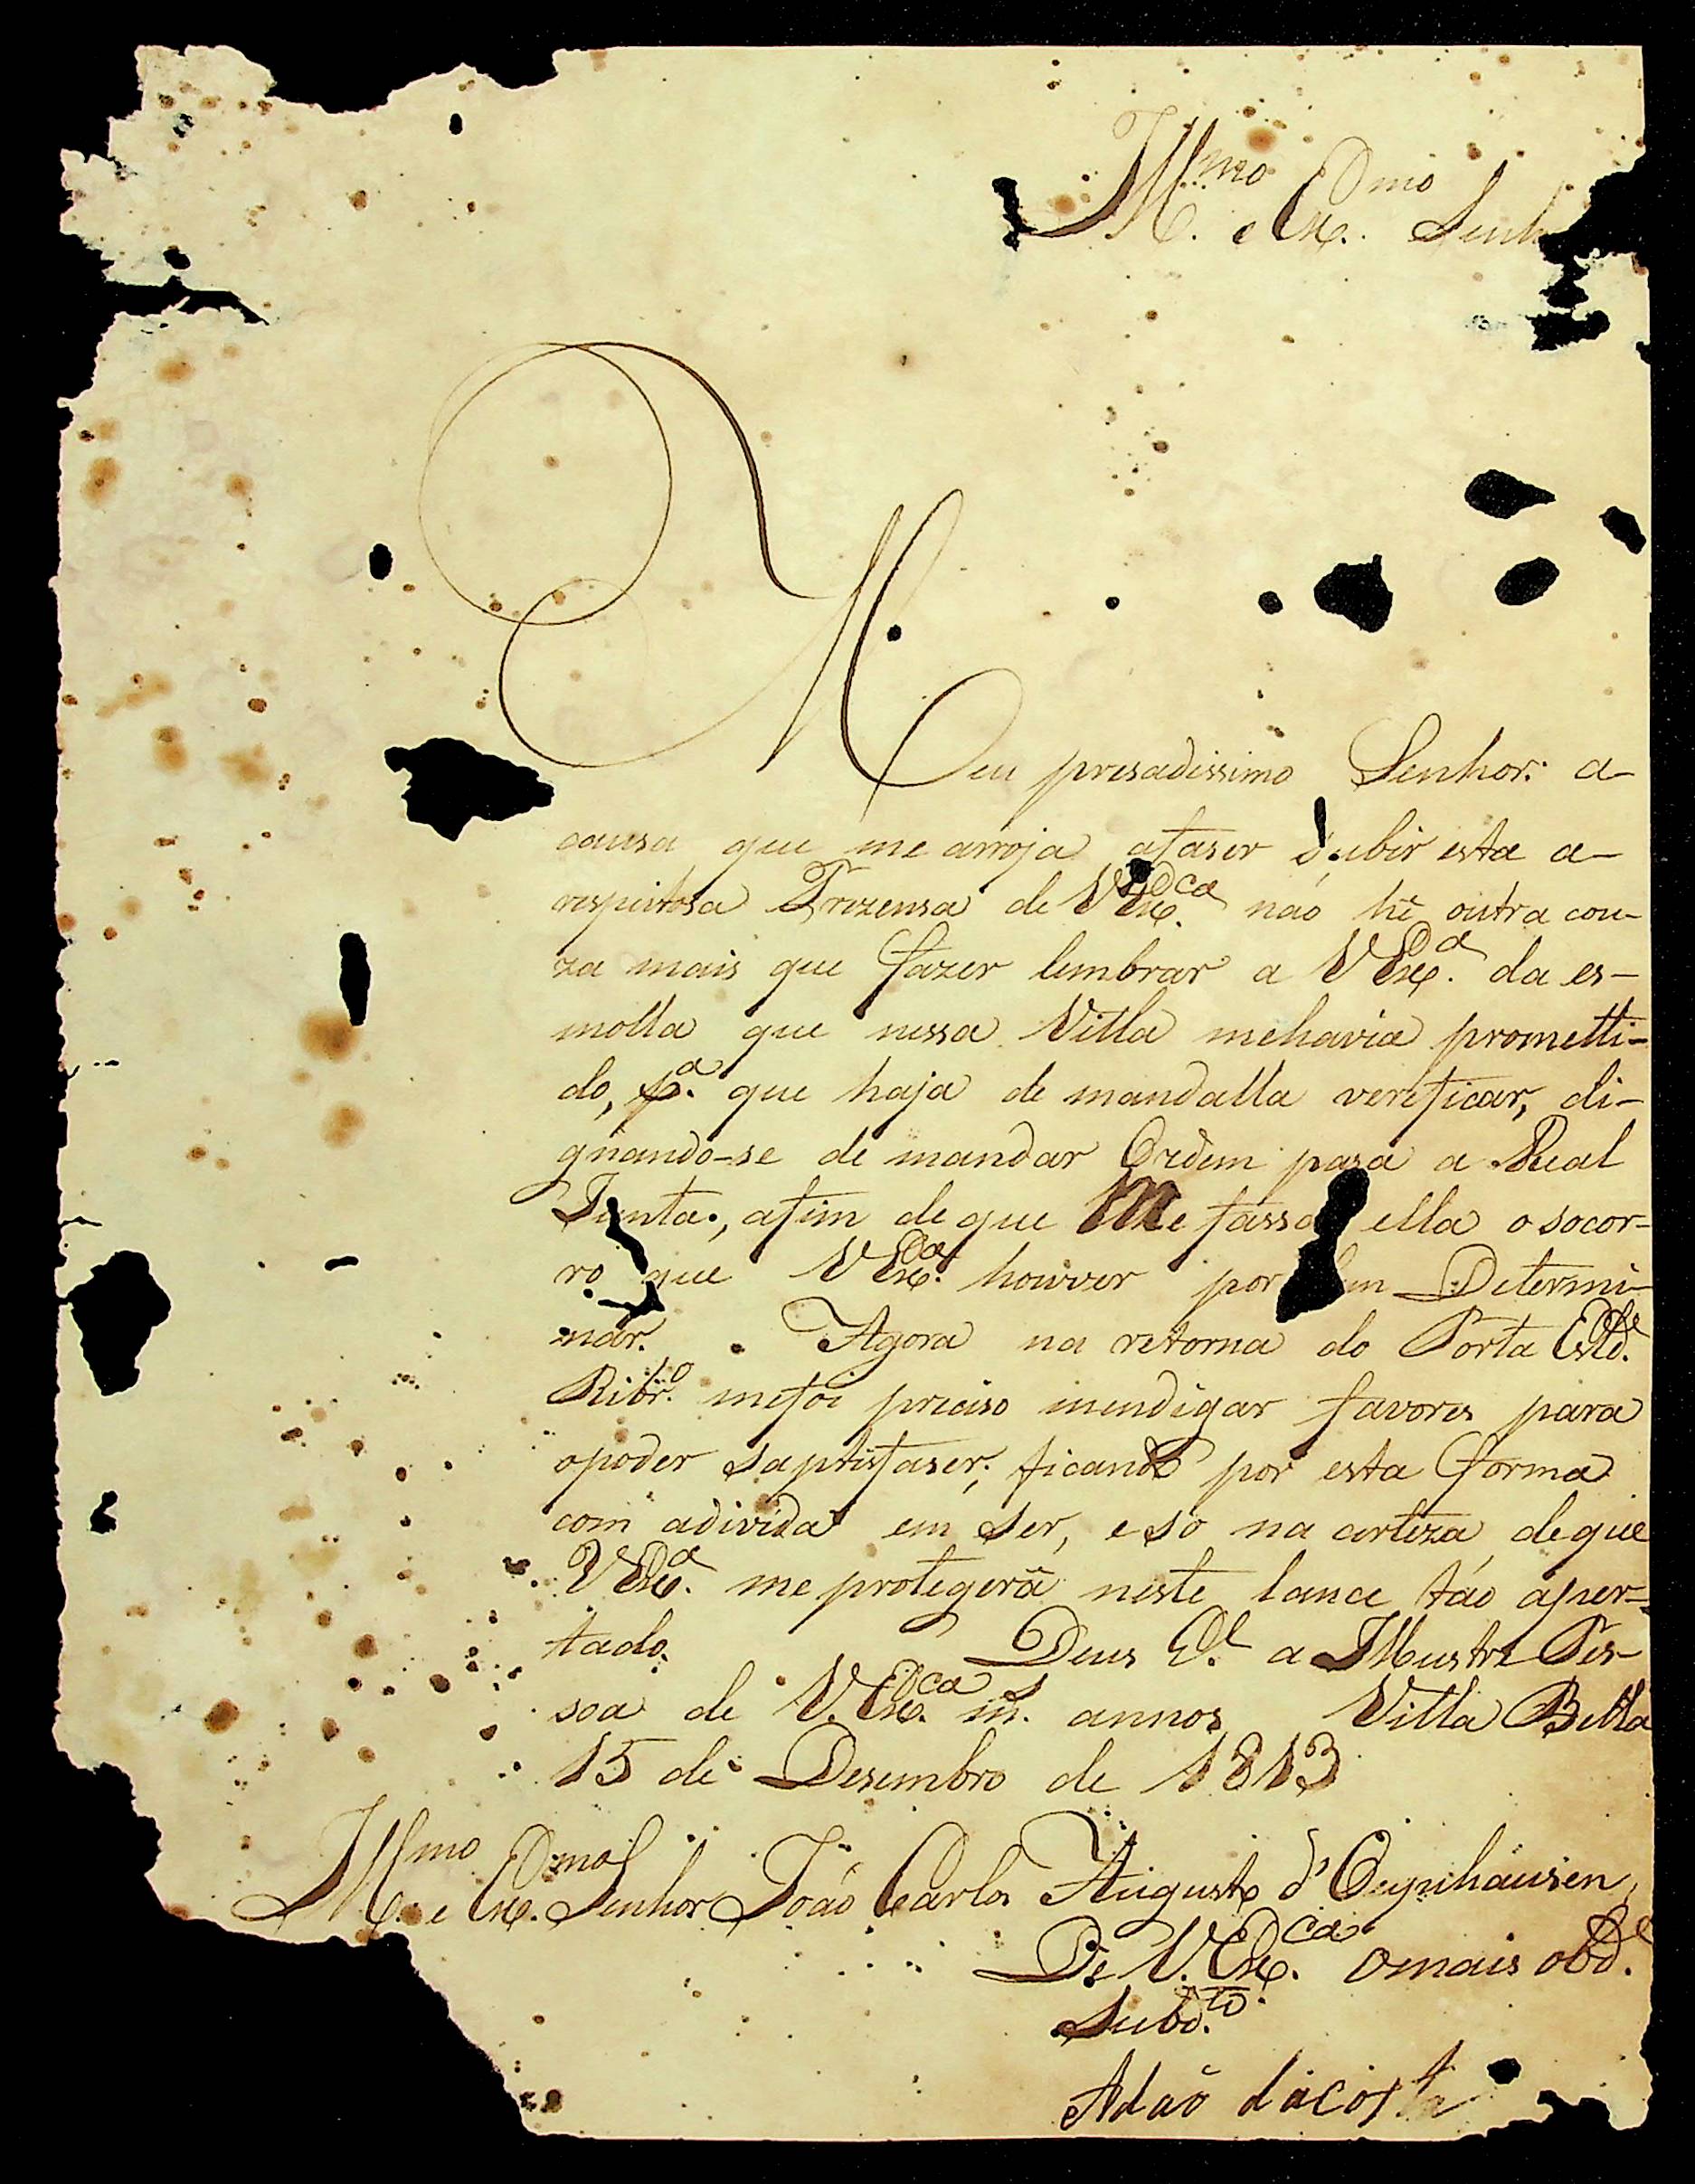 Ill.mo e Ex.mo Senh
Meu presadissimo Senhor: a-
causa que me arroja afaser subir esta a-
respeitosa Prezensa de VEx.ca não hé outra cou-
za mais que fazer lembrar a VEx.a da es-
molla que nessa Villa mehavia prometti-
do, p.a que haja de mandalla verificar, di-
gnando-se de mandar Ordem para a Real
Junta, afim de que Me fassa ella o socor-
ro que VEx.ca houver por bem Determi-
nar. Agora na retorna do Porta Est.de
Ribr.o mefoi preciso mendigar favores para
opoder saptisfaser; ficando por esta forma
com adivida em ser, e só na certeza deque
VEx.a me protegerá neste lance tão aper-
tado. Deus G.e a Illustre Pes-
soa de V.Ex.ca m.s annos Villa Bella
15 de Desembro de 1813
Ill.mo e Ex.mo Senhor João Carlos Augusto d'Oeynhausen
De V.Ex.ca Omais obd.e
Subd.to
Adaõ dacosta